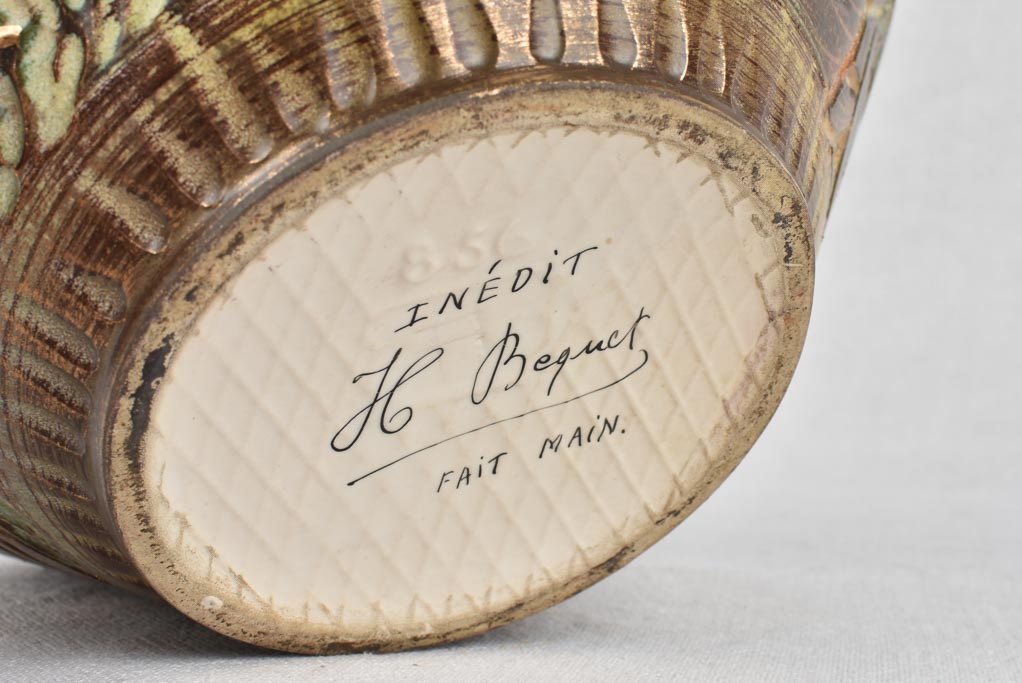 INÉDIT
H Bequet
FAIT MAIN.